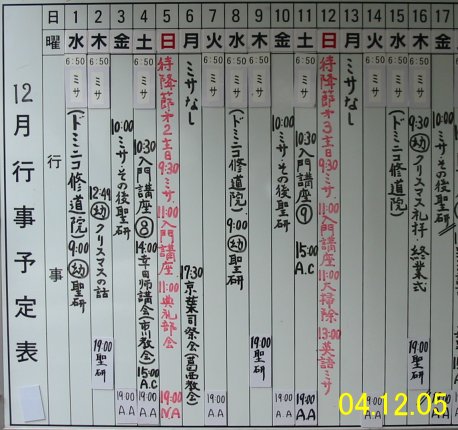 12月行事予定表
日 1 2 3 4 5 6 7 8 9 10 11 12 13 14 15 16 17
曜 水 木 金 土 日 月 火 水 木 金 土 日 月 火 水 木 金
行事
6:50 ミサ
(ドミニコ修道院) 9:00 幼 聖研
6:50 ミサ
12:40 幼 クリスマスの話
19:00 聖研
10:00 ミサ・その後聖研
19:00 A.A
6:50 ミサ
10:30 入門講座⑧ 14:00 幸田師講会(市川教会) 15:00 A.C
19:00 A.A
待降節第2主日 9:30 ミサ 11:00 入門講座 11:00 典礼部会
19:00 N.A
ミサなし
17:30 京葉司祭会(葛西教会)
6:50 ミサ
19:00 A.A
6:50 ミサ
(ドミニコ修道院) 9:00 幼 聖研
6:50 ミサ
19:00 聖研
10:00 ミサ・その後聖研
19:00 A.A
6:50 ミサ
10:30 入門講座⑨ 15:00 A.C
19:00 A.A
待降節第3主日 9:30 ミサ 11:00 入門講座 11:00 大掃除 13:00 英語ミサ
ミサなし
6:50 ミサ
6:50 ミサ
(ドミニコ修道院)
6:50 ミサ
9:30 幼 クリスマス礼拝・終業式
19:00 聖研
10:00 ミサ・その後聖研
04.12.05